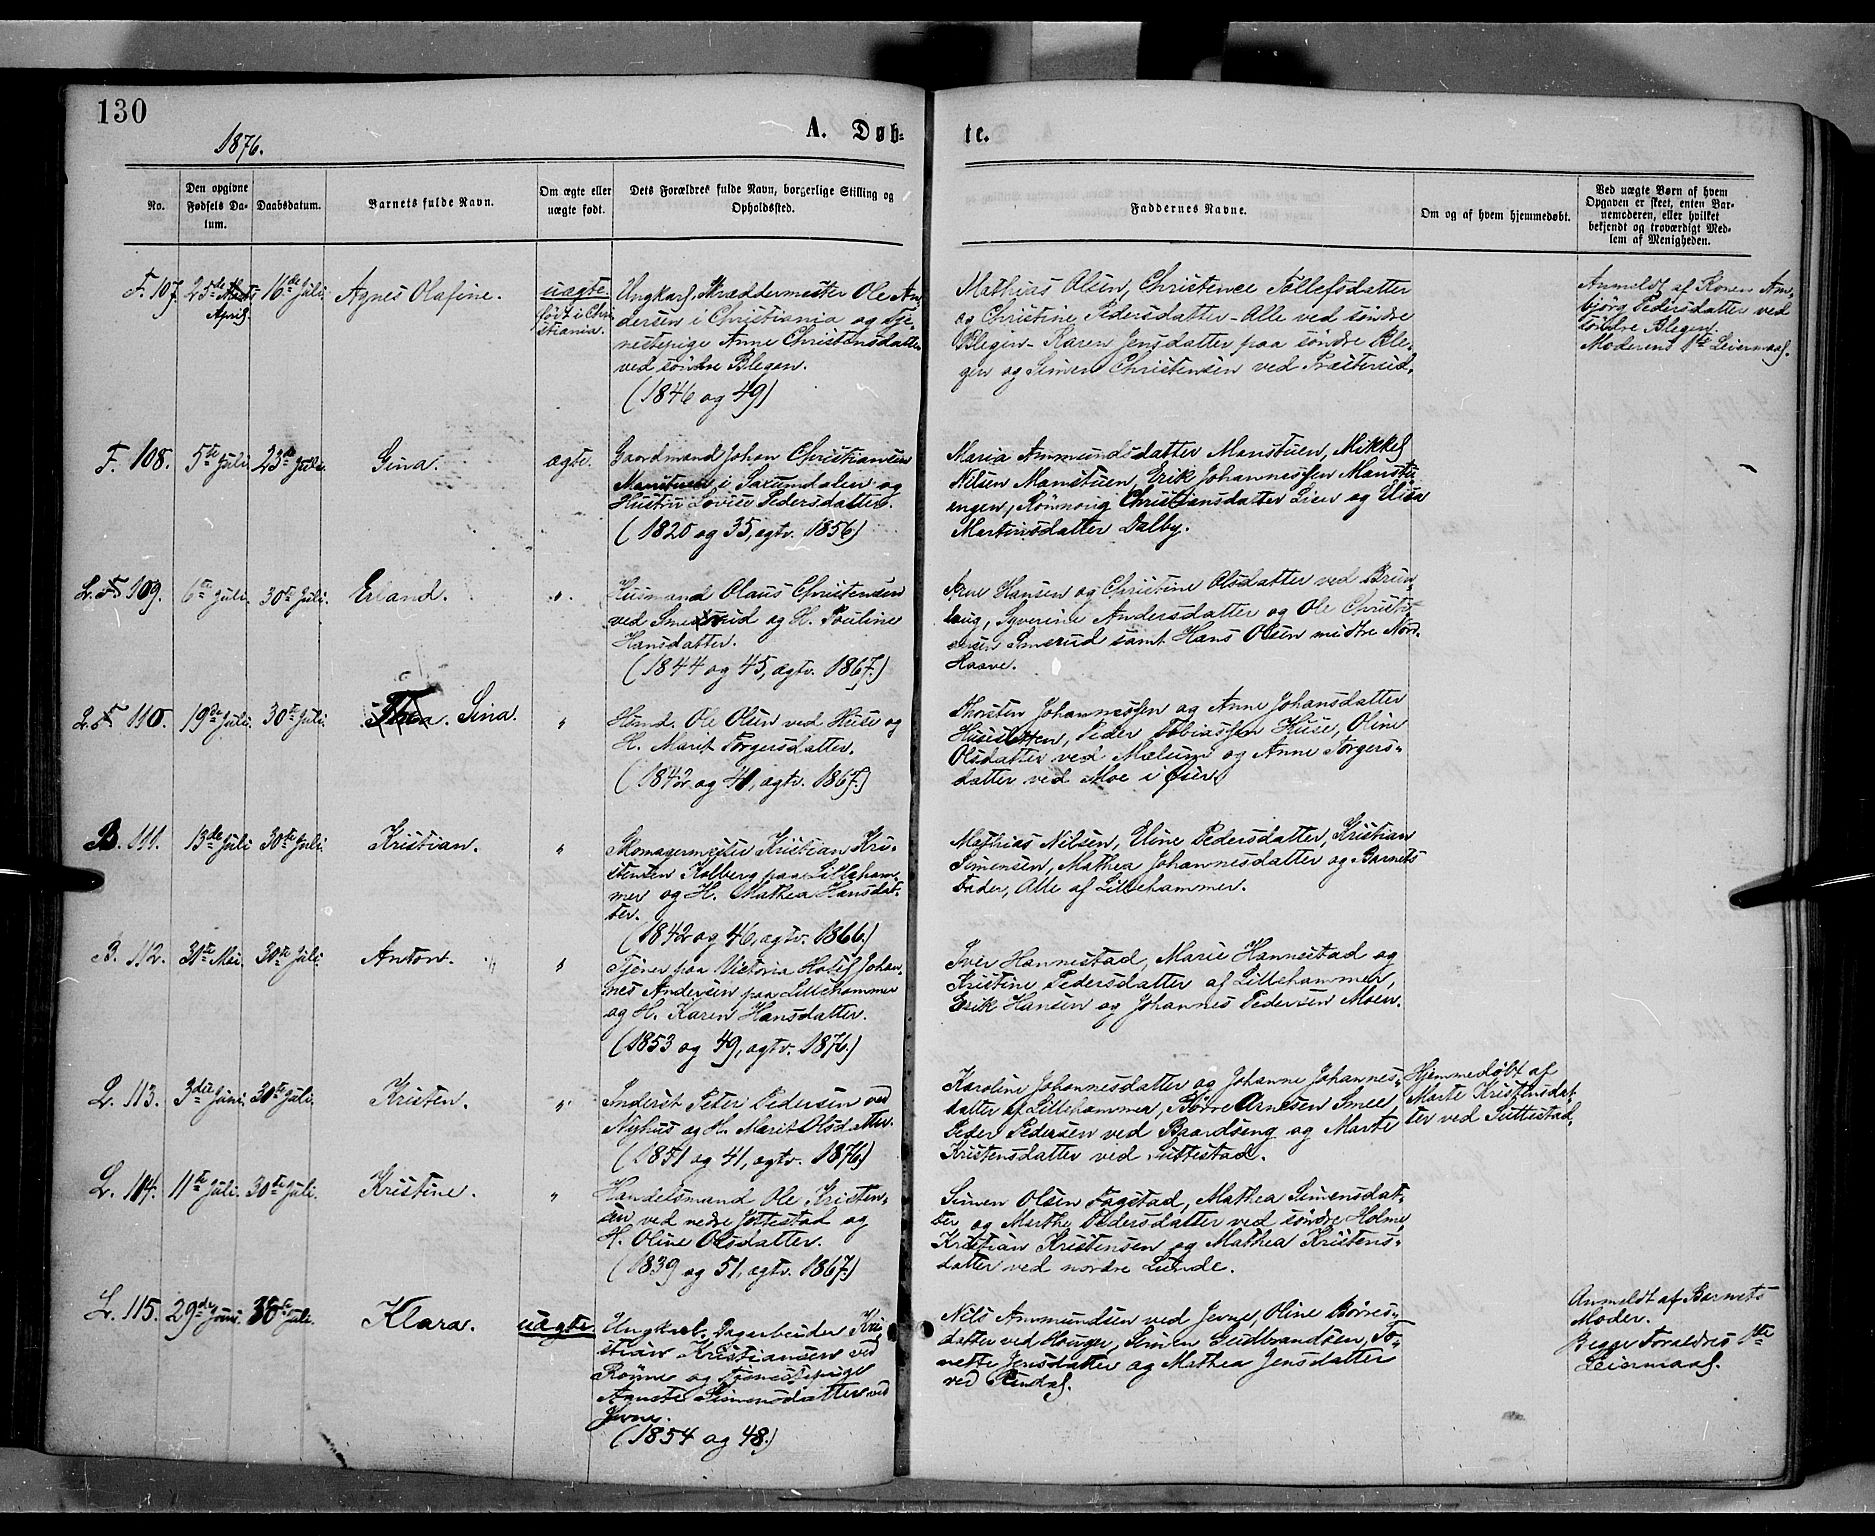 130
1876.
A. Døb-
te.
No.
Den opgivne
Fødsels Da-
tum.
Daabsdatum.
Barnets fulde Navn.
Om ægte eller
uægte født.
Dets Forældres fulde Navn, borgerlige Stilling og
Opholdssted.
Faddernes Navne.
Om og af hvem hjemmedøbt.
Ved uægte Børn af hvem
Opgaven er skeet, enten Bar-
nemoderen, eller hvilket
bekjendt og troværdigt Med-
lem af Menigheden.
F. 107. 25de April 16de Juli Agnes Olafine.
uægte.
født i Chri-
stiania.
Ungkarl, Skræddermester Ole An-
dersen i Christiania og Tje-
nestepige Anne Christensdatter
ved søndre Blegen.
(1846 og 49)
Mathias Olsen, Christence Tollefsdatter
og Christine Pedersdatter - Alle ved søndre
Blegen - Karen Jensdatter paa søndre Ble-
gen og Simen Christensen ved Præsterud.
Anmeldt af Konen Am-
bjørg Pedersdatter ved
søndre Blegen.
Moderens 1ste Leiermaal.
F. 108. 5te Juli 23de Juli Gina. ægte.
Gaardmand Johan Christiansen
Manstuen i Saxumdalen og
Hustru Lovise Pedersdatter.
(1820 og 35, ægtv. 1856)
Maria Ammundsdatter Manstuen, Mikkel
Nilsen Manstuen, Erik Johannessen Manstu-
engen, Rønnoug Christiansdatter Lien og Elisa
Martinsdatter Dalby.
L. F 109. 6te Juli. 30te Juli. Erland. "
Husmand Olaus Christensen
ved Smedsrud og H. Pouline
Hansdatter.
(1844 og 45, ægtv. 1867.)
Arne Hansen og Christine Olsdatter ved Brun-
laug, Syverine Andersdatter og Ole Christi-
ansen Smerud samt Hans Olsen midtre Nord-
Haave.
L. F 110. 19de Juli. 30te Juli. Thea Sina. "
Husmd. Ole Olsen ved Huse og
H. Marit Torgersdatter.
(1842 og 41, ægtv. 1867.)
Thorsten Johannessen og Anne Johansdatter
Huseslætten, Peder Tobiassen Huse, Oline
Olsdatter ved Mælum og Anne Torgers-
datter ved Moe i Øier.
B. 111. 13de Juli 30te Juli. Kristian. "
Skomagermester Kristian Kri-
stensen Kolberg paa Lilleham-
mer og H. Mathea Hansdat-
ter.
(1842 og 46, ægtv. 1866.)
Mathias Nilsen, Eline Pedersdatter, Kristian
Simensen, Mathea Johannesdatter og Barnets
Fader, Alle af Lillehammer.
B. 112. 31te Mai. 30te Juli. Anton. "
Tjener paa Victoria Hotel Johan-
nes Andersen paa Lillehammer
og H. Karen Hansdatter.
(1853 og 49, ægtv. 1876.)
Iver Hannestad, Marie Hannestad og
Kristine Pedersdatter af Lillehammer,
Erik Hansen og Johannes Pedersen Moen.
L. 113. 3die Juni. 30te Juli. Kristen. "
Inderst Peter Pedersen ved
Nyhus og H. Marit Olsdatter.
(1851 og 41, ægtv. 1876)
Karoline Johannesdatter og Johanne Johannes-
datter af Lillehammer, Børre Arnesen Smeel
Peder Pedersen ved Baardseng og Marte
Kristensdatter ved Suttestad.
Hjemmedøbt af
Marte Kristensdat-
ter ved Suttestad.
L. 114. 11te Juli. 30te Juli. Kristine. "
Handelsmand Ole Kristen-
sen ved nedre Jøttestad og
H. Oline Olsdatter.
(1839 og 51, ægtv. 1867.)
Simen Olsen Fagstad, Mathea Simensdat-
ter og Marthe Pedersdatter ved søndre Holme,
Kristian Kristensen og Mathea Kristens-
datter ved nordre Lunde.
L. 115. 29de Juni. 30te Juli. Klara. uægte.
Ungkarl, Dagarbeider Kri-
stian Kristiansen ved
Rønne og Tjenestepige
Agnete Simensdatter ved
Jevne.
(1854 og 48.)
Nils Ammundsen ved Jevne, Oline Børres-
datter ved Houger, Simen Gudbrandsen, To-
nette Jensdatter og Mathea Jensdatter
ved Rindal.
Anmeldt af Barnets
Moder.
Begge Forældres 1ste
Leiermaal.